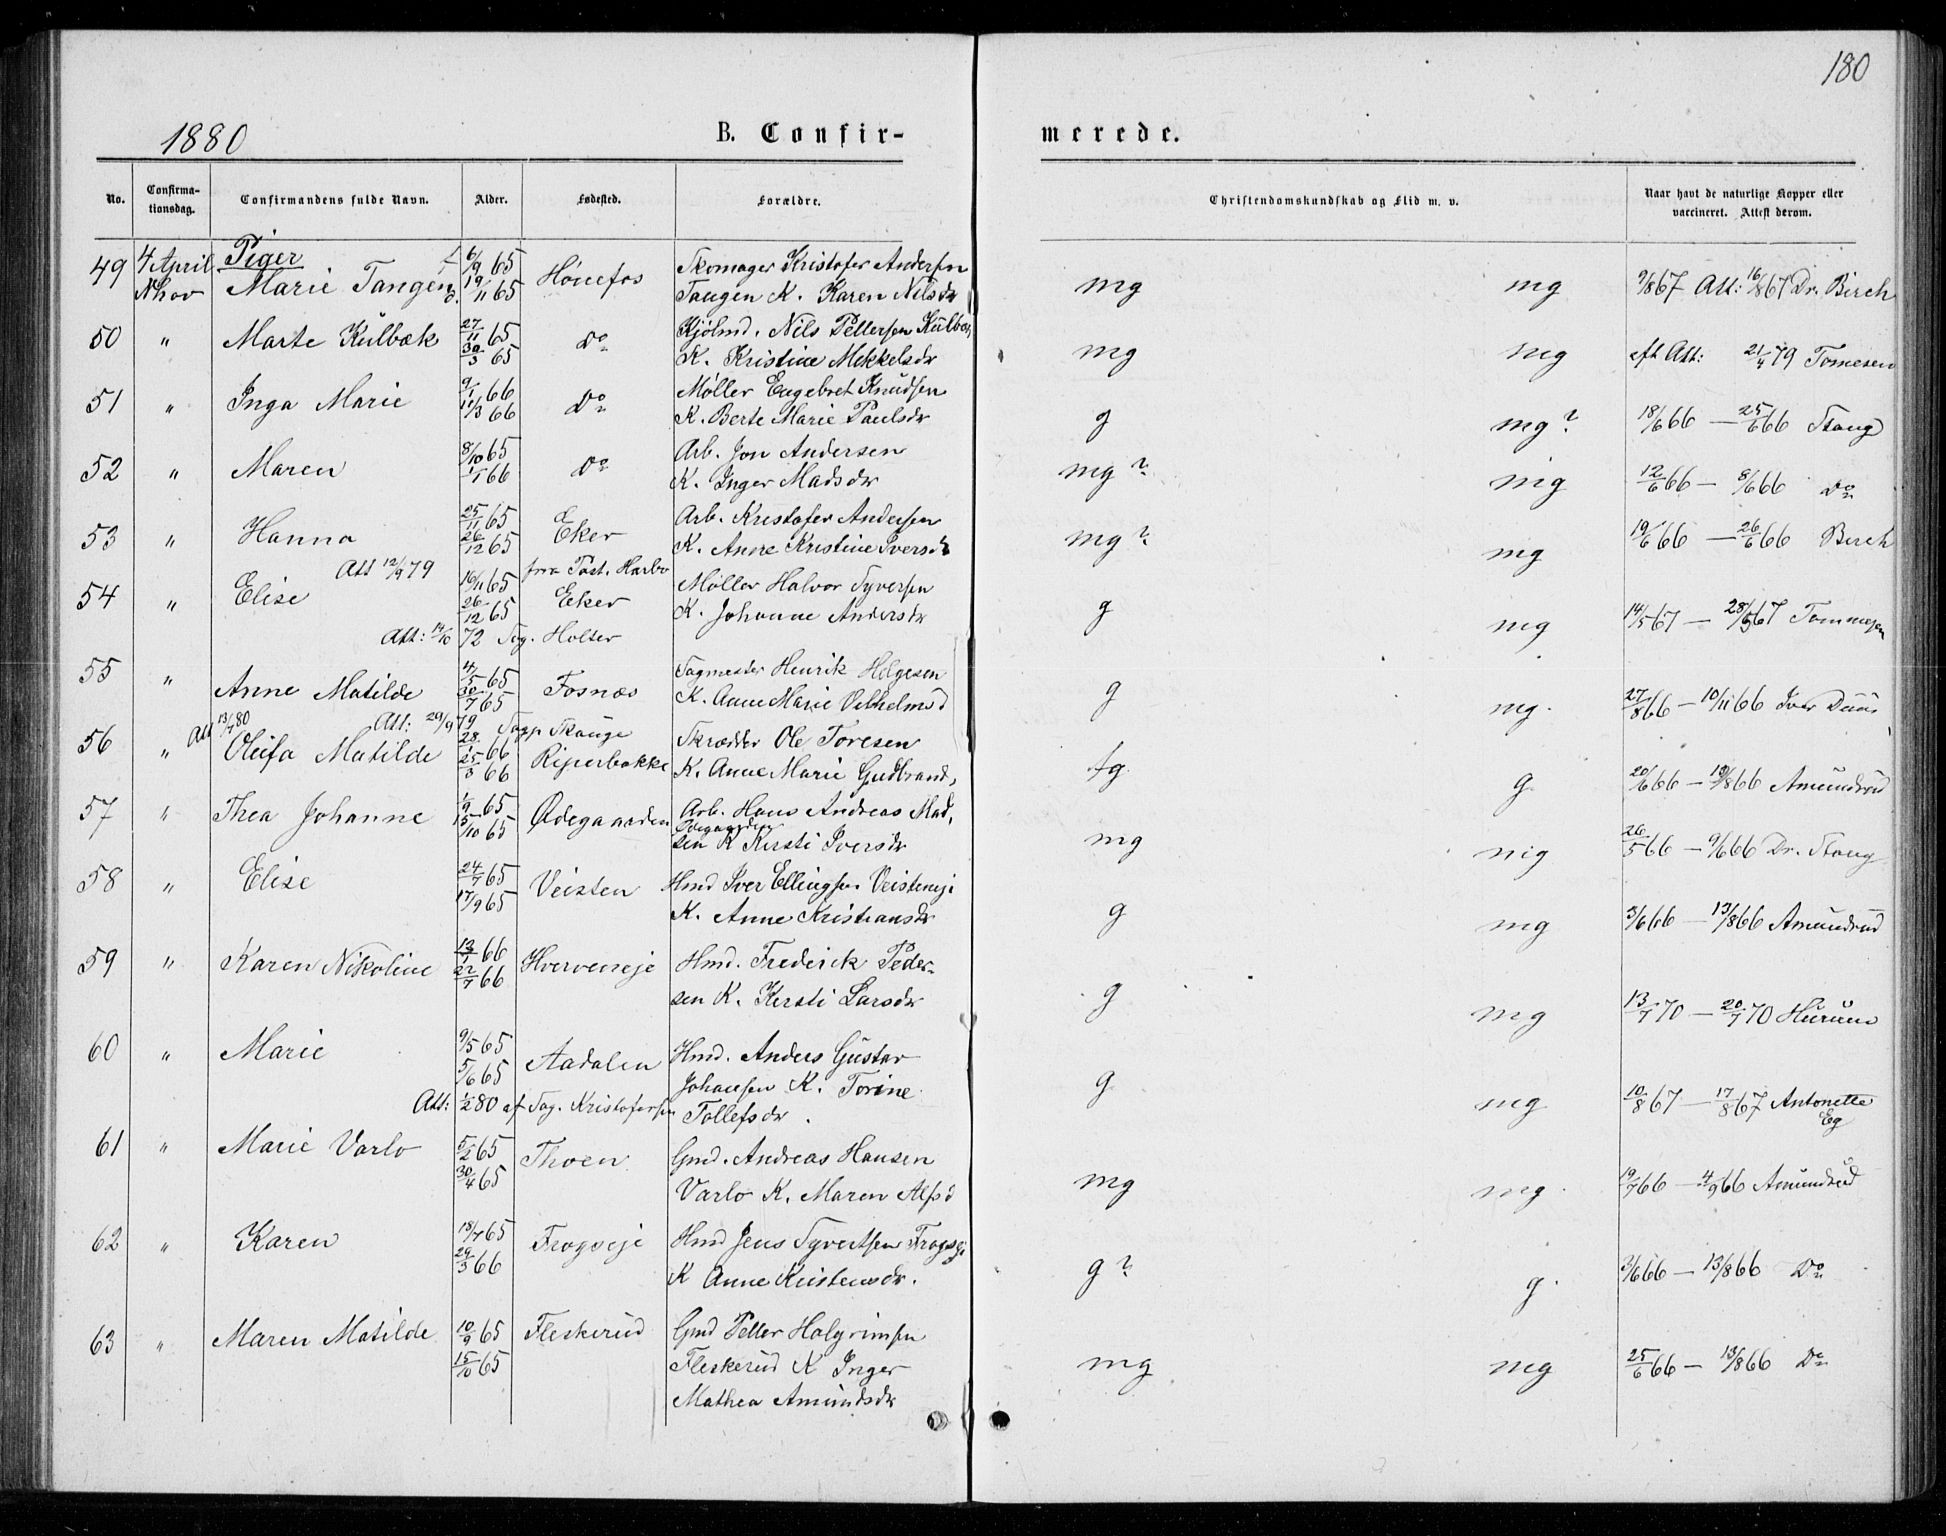 180
1880 B. Confir- merede.
No. Confirma-tionsdag. Confirmandens fulde Navn. Alder. Fødested. Forældre. Christendomskundskab og Flid m. v. Naar havt de naturlige Kopper eller vaccineret. Attest derom.
49 4 April Piger f. 6/9 65 Skomager Kristofer Andersen
Nhov Marie Tangen d. 19/11 65 Hönefos Tangen K. Karen Nilsdr mg mg 9/8 67 Att: 16/8 67 Dr. Birch
50 " Marte Kulbæk 27/11 65 Do Kjölmd. Nils Pettersen Kulbæk
30/3 65 K. Kristine Mekkelsdr mg mg eft Att: 21/4 79 Tomesen
51 " Inga Marie 9/1 66 Do Møller Engebret Knudsen
11/3 66 K. Berte Marie Paulsdr g mg? 18/6 66 — 25/6 66 Stang
52 " Maren 8/10 65 Do Arb. Jon Andersen
1/1 66 K. Inger Madsdr mg? mg 12/6 66 — 8/6 66 Do
53 " Hanna 25/11 65 Eker Arb. Kristofer Andersen
26/12 65 K. Anne Kristine Iversdr mg? mg 19/6 66 — 26/6 66 Birch
Att 12/9 79 fra Past. Harbo
54 " Elise 16/11 65 Eker Møller Halvor Syversen
26/12 65 K. Johanne Andersdr g mg 14/5 67 — 28/5 67 Tommesen
Att: 14/10 72 Sog. Holter
55 " Anne Matilde 4/5 65 Fosnæs Sagmester Henrik Helgesen
30/7 65 K. Anne Marie Vilhelmsd g mg. 27/8 66 — 10/11 66 Iver
Att 13/7 80 Att: 29/9 79 Sogp. Skauge
56 " Oleifa Matilde 28/1 66 Riperbakke Skrædder Ole Toresen
25/3 66 K. Anne Marie Gudbrand, tg. g. 20/6 66 — 13/8 66 Amundrud
57 " Thea Johanne 1/9 65 Ødegaarden Arb. Hans Andreas Mad,
15/10 65 Ødegaarden
sen K Kersti Iversdr mg mg 26/5 66 — 9/6 66 Dr. Stang
58 " Elise 24/7 65 Veisten Hmd Iver Ellingsen Veisteneje
17/9 65 K. Anne Kristiansdr g mg 3/6 66 — 13/8 66 Amundrud
59 " Karen Nikoline 13/1 66 Hverveneje Hmd. Frederick Peder-
22/7 66 sen K. Kersti Larsdr g mg 13/7 70 — 20/7 70 Hurum
60 " Marie 9/5 65 Aadalen Hmd. Anders Gustav
5/6 65 Johansen K. Torine g mg 10/8 67 — 17/8 67 Antonette Eg
Att: 1/2 80 af Sog. Kristofersen Tollefsdr.
61 " Marie Varlo 5/2 65 Thoen Gmd. Andreas Hansen
30/4 65 Varlo K. Maren Alfsd mg mg. 19/7 66 — 4/9 66 Amundrud
62 " Karen 18/7 65 Frogseje Hmd Jens Syvertsen Frogseje
29/3 66 K Anne Kristensdr. g? g. 3/6 66 — 13/8 66 Do
63 " Maren Matilde 10/9 65 Fleskerud Gmd Petter Halgrimsen
15/10 65 Fleskerud K Inger mg mg 25/6 66 — 13/8 66 Do
Mathea Amundsdr